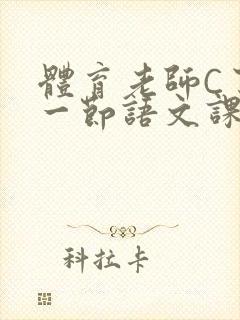 體育老師C
一節語文課
科拉卡